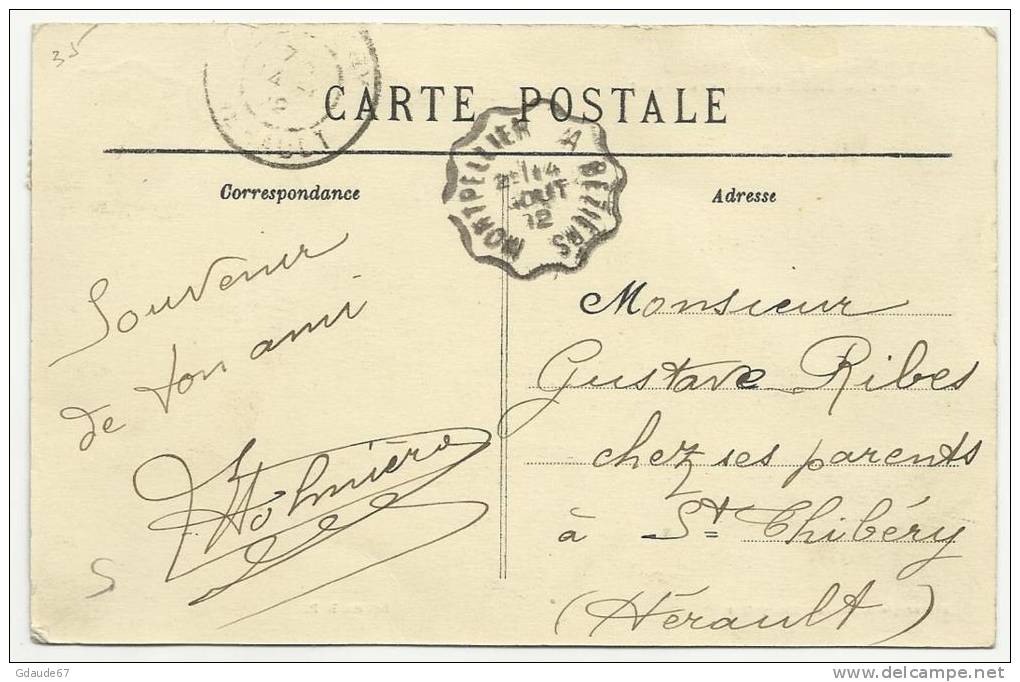 35
HÉRAULT
CARTE POSTALE
MONTPELLIER A BÉZIERS
14
AOUT
12
Correspondance
Adresse
Souvenir
de ton ami
Monsieur
Gustave Ribes
chez ses parents
à St Thibéry
(Hérault)
S
Gdaude67
www.delcampe.net